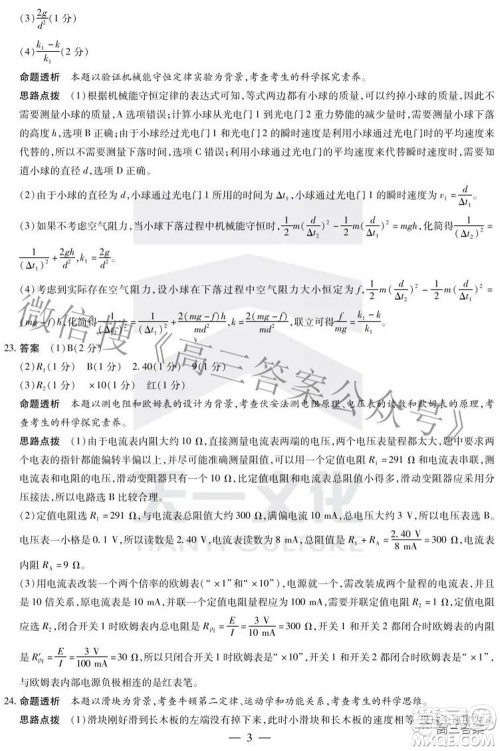 (3) 2g/d² (1分)
(4) (k₁-k)/k₁ (2分)
命题透析 本题以验证机械能守恒定律实验为背景,考查考生的科学探究素养。
思路点拨 (1)根据机械能守恒定律的表达式可知,等式两边都有小球的质量,可以约掉小球的质量,因此不
需要测量小球的质量,A选项错误;计算小球从光电门1到光电门2重力势能的减少量时,需要测量小球下落
的高度h,选项B正确;由于小球通过光电门1和光电门2的瞬时速度是利用小球通过光电门时的平均速度来
代替的,所以不需要测量下落时间,选项C错误;利用小球通过光电门的平均速度代替瞬时速度时,需要知
道小球的直径d,选项D正确。
(2)由于小球的直径为d,小球通过光电门1所用的时间为Δt₁,小球通过光电门1的瞬时速度为v₁=d/Δt₁。
(3)如果不考虑空气阻力,当小球下落过程中机械能守恒时,1/2 m(d/Δt₂)²-1/2 m(d/Δt₁)²=mgh,化简得1/(Δt₂)²=
1/(Δt₁)²+2gh/d²,k₁=2g/d²。
(4)考虑到实际存在空气阻力,设小球在下落过程中空气阻力大小恒定为f,1/2 m(d/Δt₂)²-1/2 m(d/Δt₁)²=
(mg-f)h,化简得1/(Δt₂)²=1/(Δt₁)²+2(mg-f)h/md²,k=2(mg-f)/md²,f/mg=(k₁-k)/k₁
23.答案 (1)B(2分)
(2)R₁(1分) B(1分) 2.40(1分) 9(1分)
(3)R₂(1分) ×10(1分) 红(1分)
命题透析 本题以测电阻和欧姆表的设计为背景,考查伏安法测电阻原理、电压表的读数和欧姆表的原理,考
查考生的科学探究素养。
思路点拨 (1)由于电流表内阻大约10 Ω,直接测量电流表两端的电压,两个电压表量程都太大,题中要求两
个电表的指针都能偏转半偏以上,并尽可能准确测量阻值,所以可以用定值电阻291 Ω和电流表串联,测
其串联后的总电阻,滑动变阻器只有20 Ω,比定值电阻291 Ω小得多,因此电路中的滑动变阻器应采用分
压接法,所以电路选B比较合理。
(2)定值电阻选R₁=291 Ω,与电流表总阻值大约300 Ω,满偏电流10 mA,总电压大约3 V,所以电压表选V₁。
电压表一小格是0.1 V,所以读数为2.40 V,电流表读数为8 mA,总阻值R₁+R_A=2.40 V/8 mA=300 Ω,电流表
内阻R_A=9 Ω。
(3)用电流表改装一个两个倍率的欧姆表(“×1”和“×10”),电源就一个,因此需要改装成两个量程的电流表,且
是10倍关系,原电流表是10 mA,并联一个定值电阻R₂后,量程变为100 mA,并联定值电阻应远小于9 Ω,所以
选R₂,闭合开关1时欧姆表内总电阻是R内=E/I=3 V/10 mA=300 Ω,同时闭合开关1和开关2时欧姆表的内阻
是R′内=E/I′=3 V/100 mA=30 Ω,所以只闭合开关1时欧姆表是“×10”,同时闭合开关1和2时欧姆表是“×1”;
与欧姆表内部电源负极相连的是红表笔。
24.命题透析 本题以滑块为背景,考查牛顿第二定律,运动学和功能关系,考查考生的科学思维。
思路点拨 (1)滑块刚好滑到长木板的左端没有掉下来,此时小滑块和长木板的速度相等
— 3 —
微信搜《高三答案公众号》
天一文化
TIANYI CULTURE
高三答案